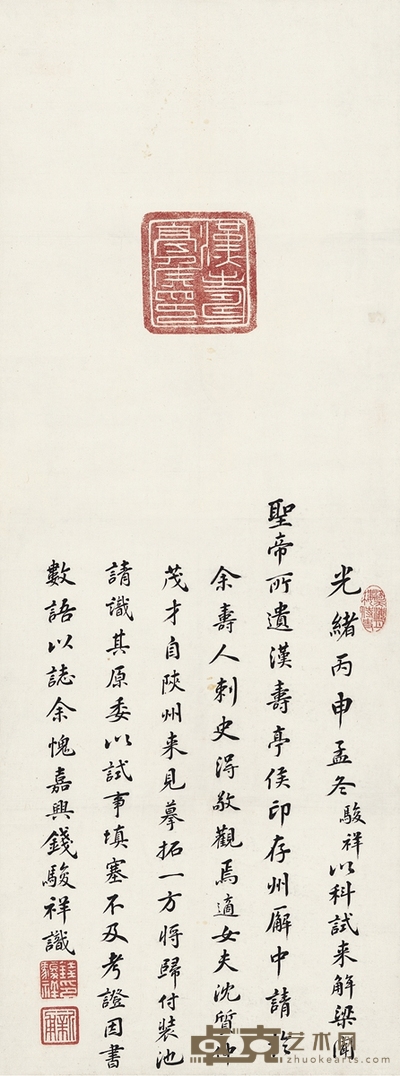 漢壽亭侯印
光緒丙申孟冬駿祥以科試来解梁聞
聖帝所遺漢壽亭侯印存州廨中請於
余壽人刺史得敬觀焉適女夫沈質仲
茂才自陝州来見摹拓一方将歸付装池
請識其原委以試事填塞不及考證因書
數語以誌余愧嘉興錢駿祥識
卓克艺术网
www.zhuokearts.com